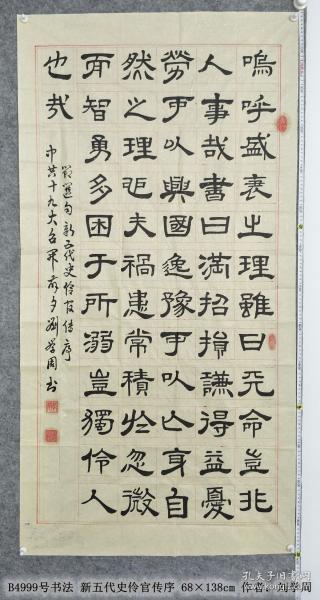 嗚呼盛衰之理雖曰天命豈非
人事哉書曰滿招損謙得益憂
勞可以興國逸豫可以亡身自
然之理也夫禍患常積於忽微
而智勇多困于所溺豈獨伶人
也哉
選句新五代史伶官傳序
中共十九大召開前夕劉學周书
B4999号书法 新五代史伶官传序 68×138cm 作者：刘学周
孔夫子旧书网